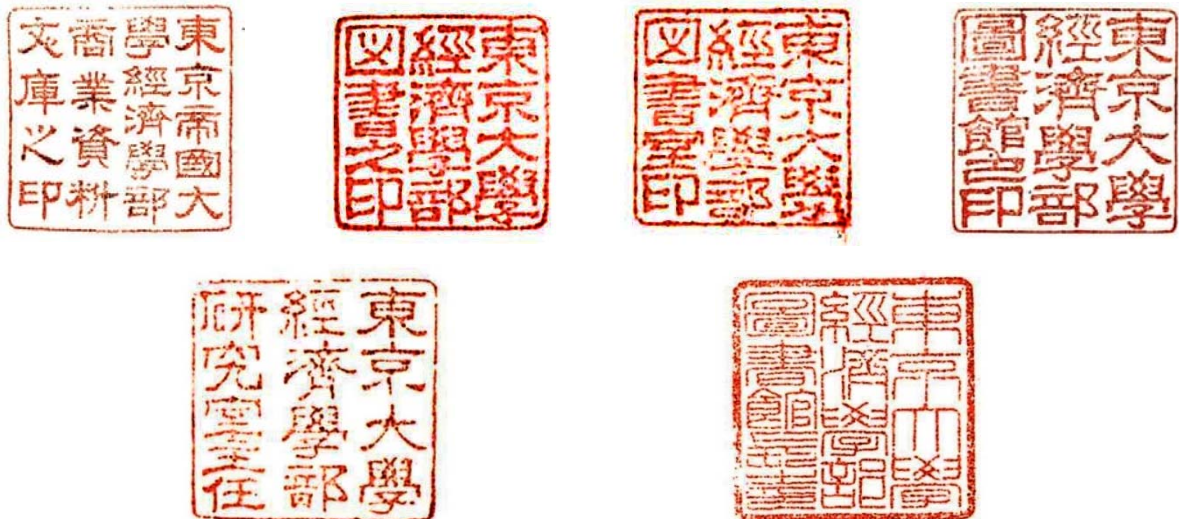 東京帝國大
學經濟學部
商業資料
文庫之印
東京大學
經濟學部
図書之印
東京大學
經濟學部
図書室印
東京大學
經濟學部
圖書館之印
東京大學
經濟學部
研究室主任
東京大學
經濟學部
圖書館